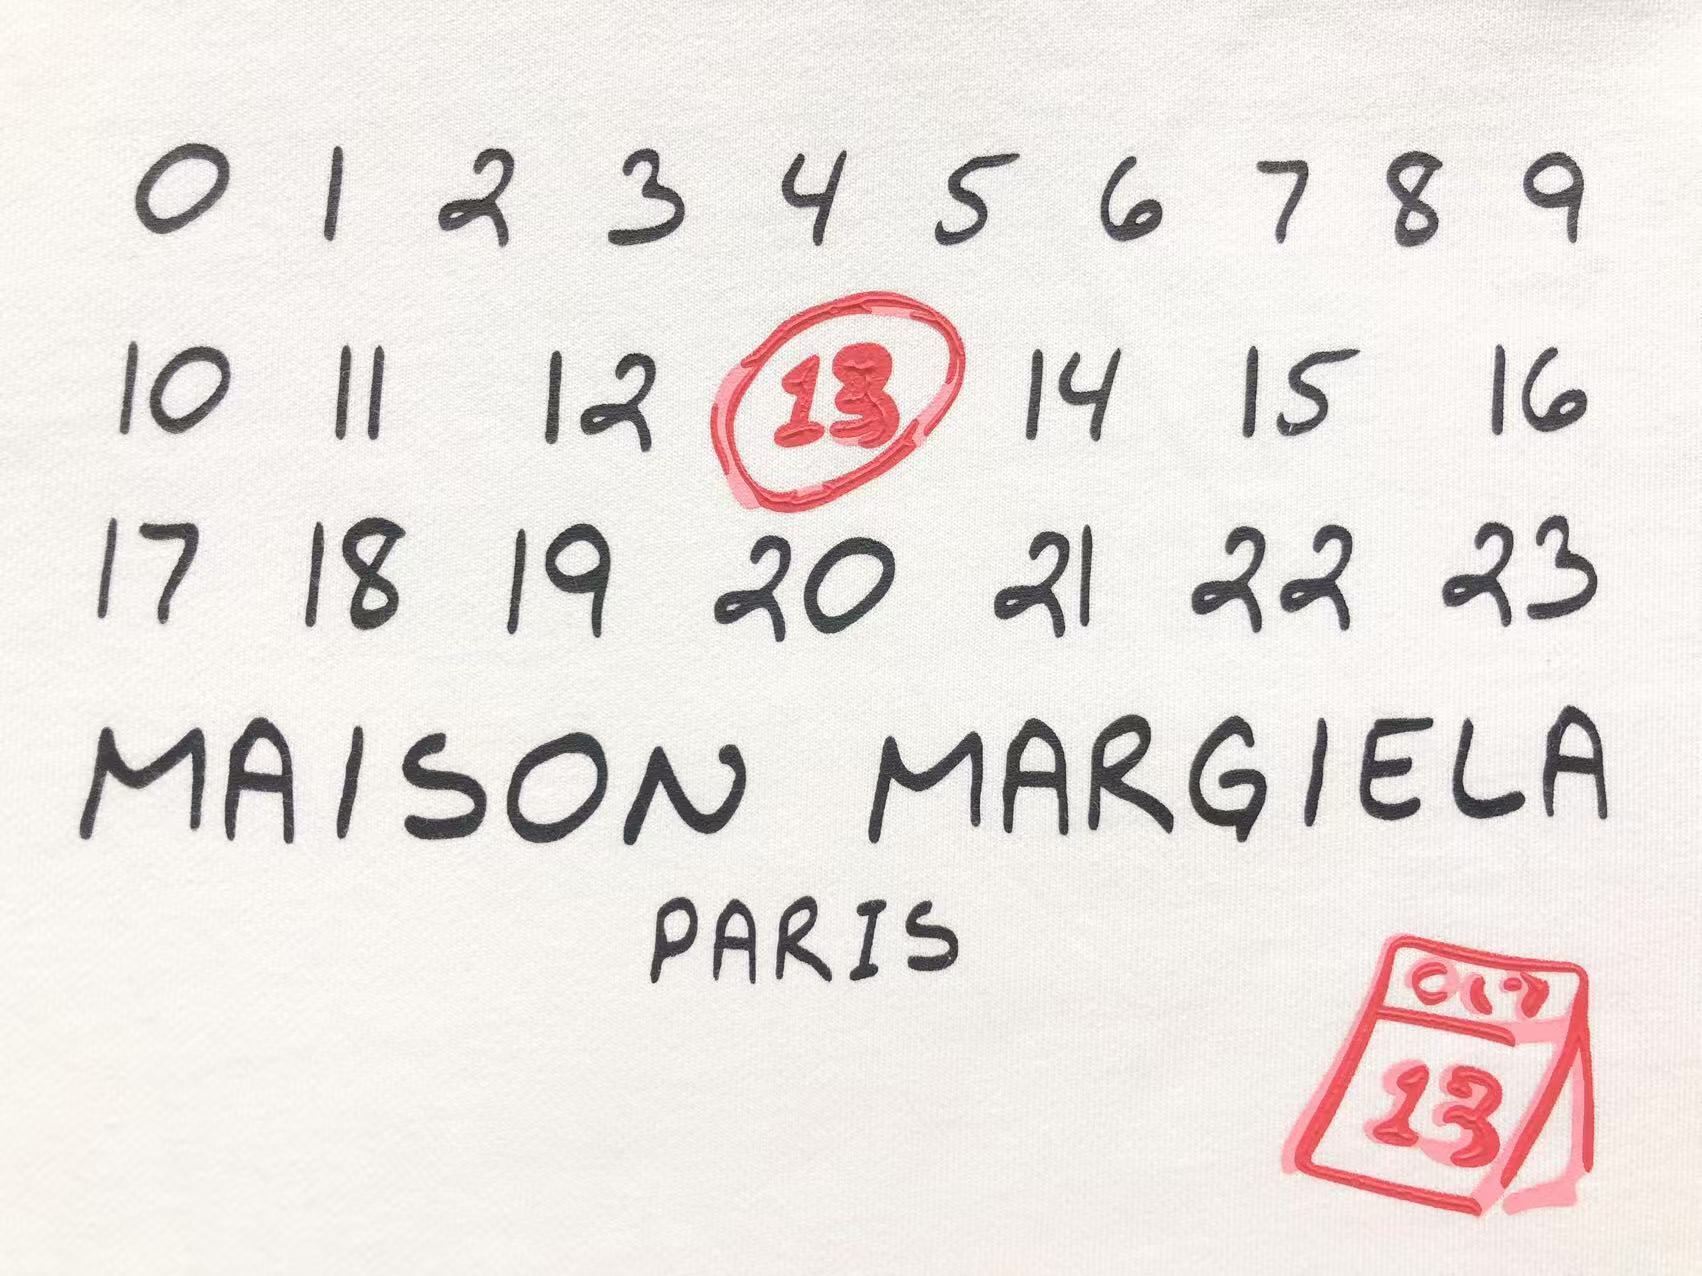 0 1 2 3 4 5 6 7 8 9
10 11 12 13 14 15 16
17 18 19 20 21 22 23
MAISON MARGIELA
PARIS
13